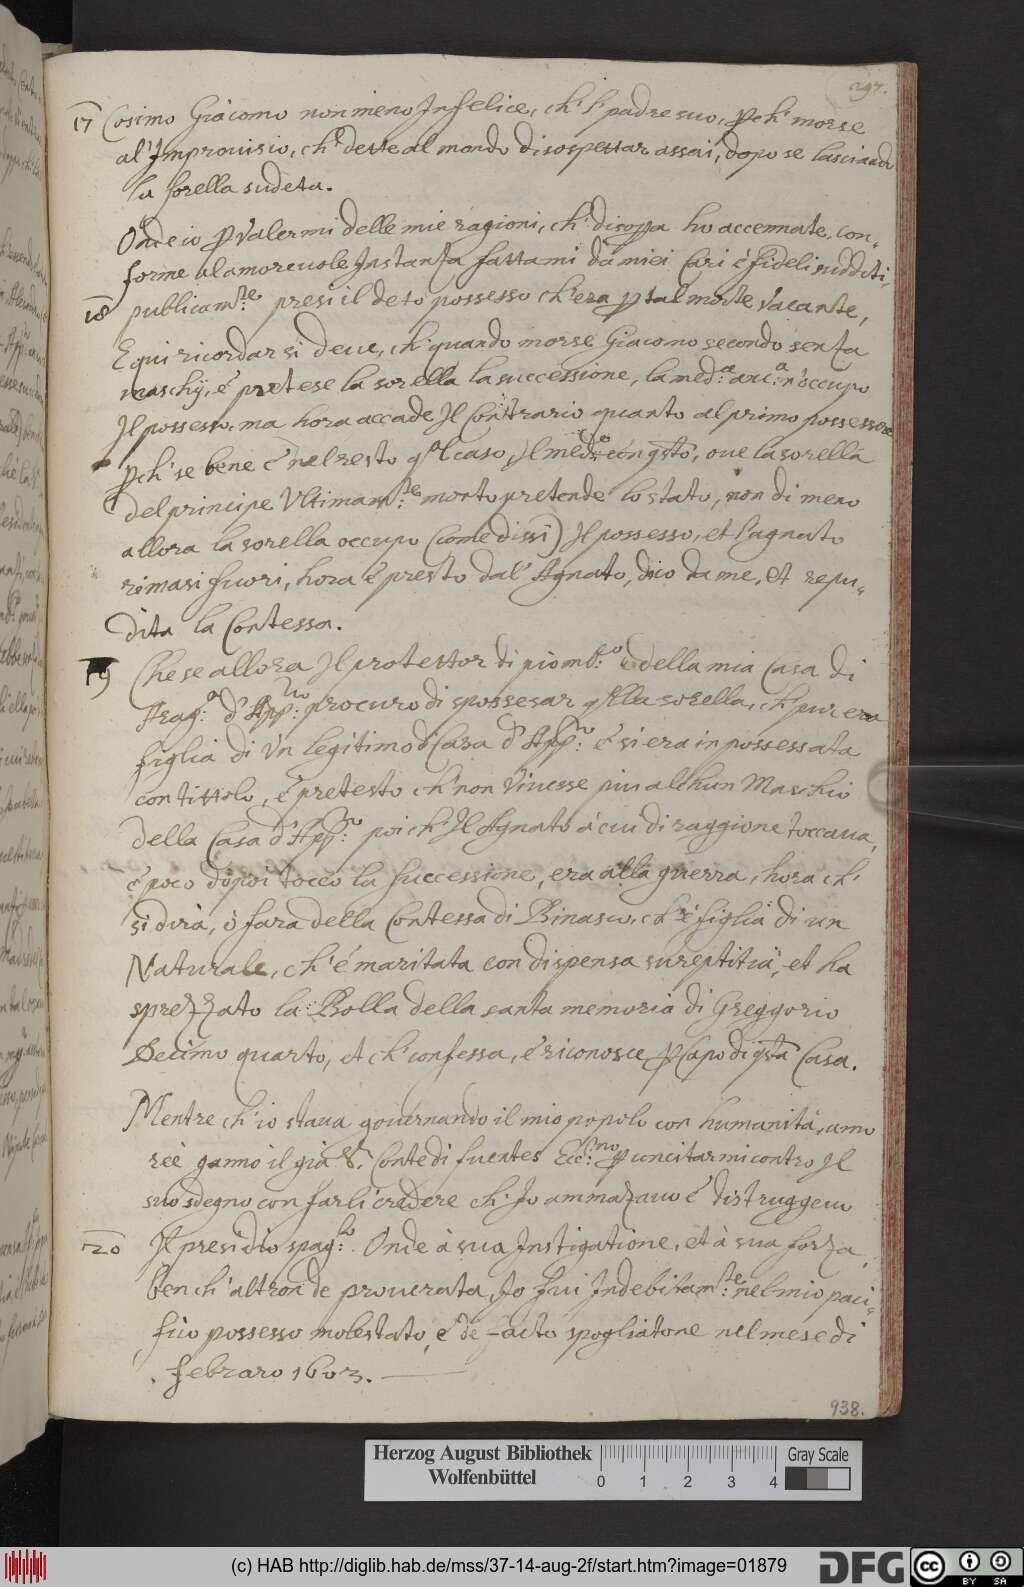 297.
17 Cosimo Giacomo non meno Infelice, ch' il padre suo, pch' morse
al' Improuiso, ch' dette al mondo di sospettar assai, dopo se lasciando
la sorella sudeta.
Onde io p valermi delle mie ragioni, ch' disopra ho accennate, con-
forme al amoreuole Instanza fattami da miei Cari è fideli sudditi,
18 publicam:te presi il deto possesso ch'era p tal morte vacante,
E qui ricordarsi deue, ch' quando morse Giacomo secondo senza
maschij, è pretese la sorella la successione, la med:a anc:a n'occupo
Il possesso, ma hora accade Il Contrario quanto al primo possessore
pch' se bene è nel resto q'l caso, Il med:o con q'sto, oue la sorella
del principe Vltimam:te morto pretende lo stato, non di meno
allora la sorella occupo (come dissi) Il possesso, et l'agnato
rimasi fuori, hora è presto dal' Agnato, dico da me, et repu-
dita la Contessa.
19 Che se allora Il protettor di piomb:o è della mia Casa di
Arag:a d'App:no procuro di spossesar q'lla sorella, ch' pur era
figlia di Vn legitimo d Casa d'App:no è si era in possessata
con tittolo, è pretesto ch' non Viuesse piu alchun Maschio
della Casa d'App:no poi ch' Il Agnato à cui di raggione toccaua,
è poco dópoi tocco la successione, era alla guerra, hora ch'
si dirà, ò fara della Contessa di Binasco, ch' è figlia di un
Naturale, ch' é maritata con dispensa sureptitia, et ha
sprezzato la Bolla della santa memoria di Greggorio
Decimo quarto, et ch' confessa, è riconosce p Capo di q'sta Casa.
Mentre ch' io staua gouernando il mio popolo con humanità,
il già S.r Conte di fuentes Ecc:mo p concitarmi contro Il
suo sdegno con farli credere ch' Io ammazauo è distruggeuo
20 Il presidio spag:lo. Onde à sua Instigatione, et à sua forza
ben ch' altronde prouerata, Io fui Indebitam:te nel mio paci-
fico possesso molestato, è de facto spogliatone nel mese di
febraro 1603.
938.
Herzog August Bibliothek
Wolfenbüttel
0 1 2 3 4
Gray Scale
(c) HAB http://diglib.hab.de/mss/37-14-aug-2f/start.htm?image=01879
DFG
cc BY SA